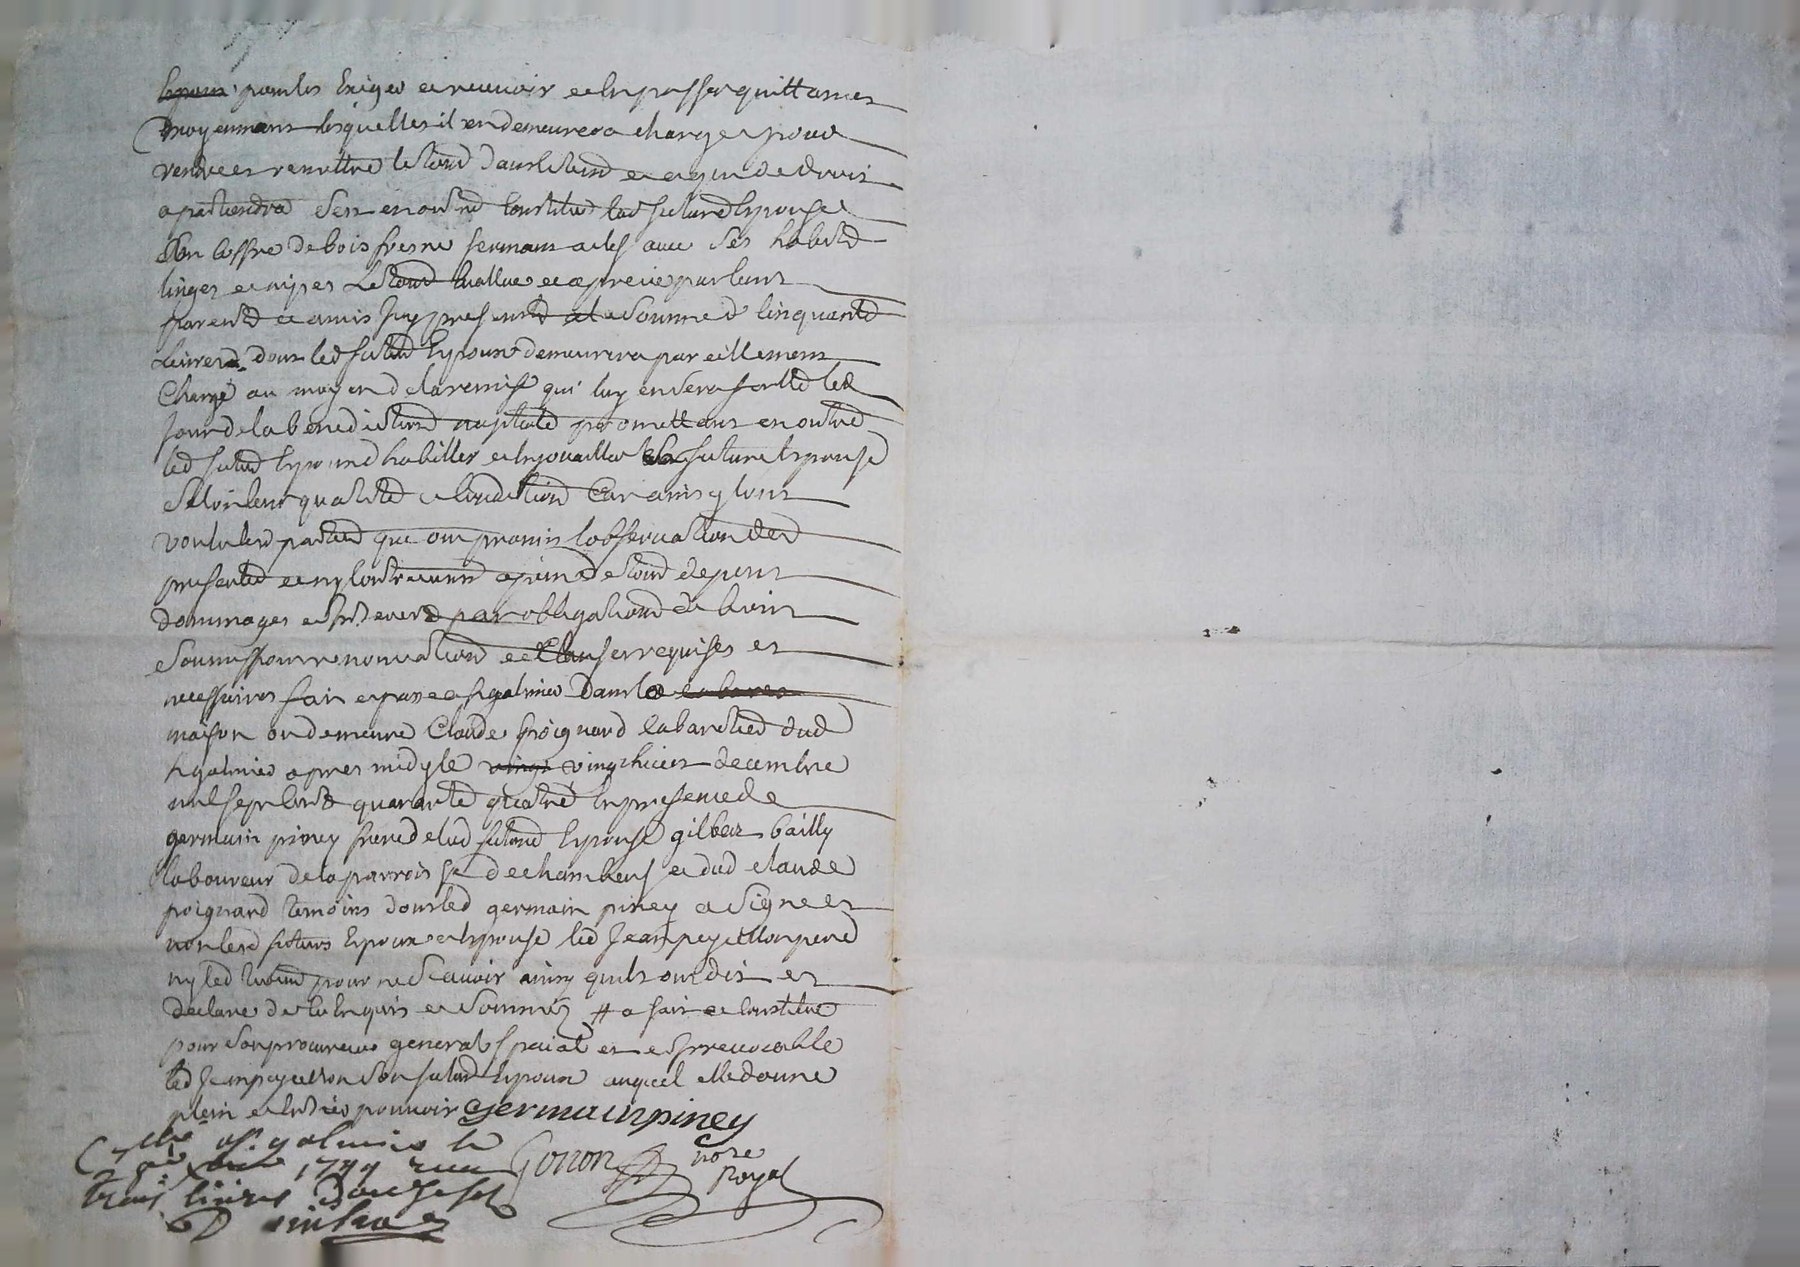 pour les Exiger et recevoir et En passer quittances
moyennant lesquelles il en demeurera charge pour
rendre et remettre le tout dans le temps et a qui de droit
apartiendra s'est en outre Constitué lad future Epouse
un coffre de bois fresne fermant a clef avec ses habits
linges et nipes Le tout Evallué et aprecié par leurs
parents et amis Icy presents a la somme de Cinquante
Livres dont led futur Epoux demeurera pareillement
Chargé au moyen de la remise qui luy en sera faitte le
Jour de la benediction nuptiale promettant en outre
led futur Epoux d habiller et Enjouailler la future Epouse
selon leur qualité et Condition Car ainsy l'ont
voulu les parties qui ont promis l'observation des
presentes et ny Contrevenir a peine de tous depens
dommages et Interets par obligation de biens
soumissions renonciation et Clauses requises et
necessaires fait et passé a st galmier dans la
maison ou demeure Claude poignard Cabaretier dud
st galmier apres midy le vingt huict decembre
mil sept Cents quarante quatre En presence de
germain piney frere de lad future Epouse gilbert bailly
laboureur de la parroisse de chambeuf et dud claude
poignard temoins dont led germain piney a signé et
non lesd futurs Epoux et Epouse led Jean peycellon pere
ny led temoin pour ne scavoir ainsy quils ont dit et
declaré de ce Enquis et sommés # a fait et Constitué
pour son procureur general special et irrevocable
led Jean peycellon son futur Epoux auquel elle donne
plein et Entier pouvoir germain piney
Cllé a st galmier le
1744 reçu
Gonon nore
Royal
trois livres douze sols